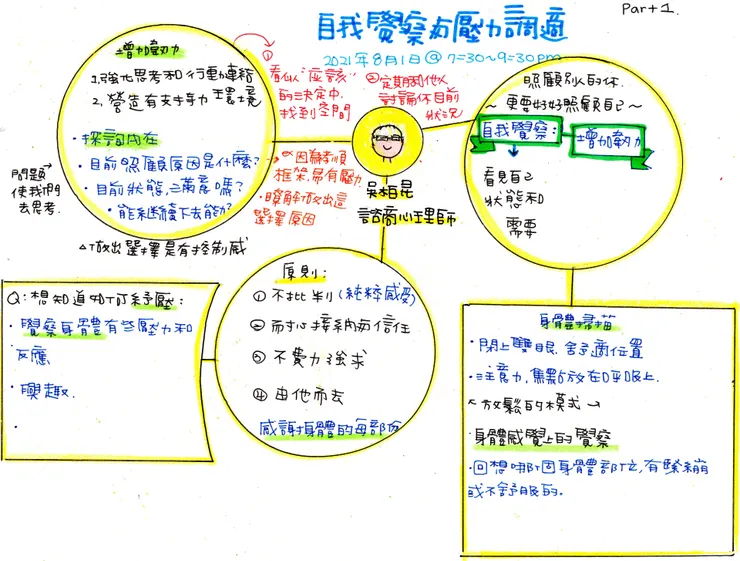 Part 1.
自我覺察與壓力調適
2021年8月1日@7=30~9=30pm
增加韌力
1.強化思考和行動連結
2.營造有支持力環境
・探詢內在
・目前照顧原因是什麼?
・目前狀態、滿意嗎?
・能繼續下去能?
問題
使我們
去思考.
△做出選擇是有控制感
①
看似"应該"
的決定中.
找到空間
②定期和他人
討論你目前
狀況
因為孝順
框架.易有壓力
・瞭解做出這
選擇原因
吳柏昆
諮商心理師
照顧別人的你.
~更要好好照顧自己~
自我覺察:
增加韌力
看見自己
狀態和
需要
Q:想知道如何紓壓:
・覺察身體有些壓力和
反應
・興趣.
・
原則:
①不批判(純粹感受)
②耐心接納與信任
③不費力強求
④由他而去
感謝身體的每部份
身體掃描
・閉上雙眼.舒適位置
・注意力,焦點放在呼吸上.
<放鬆的模式→
・身體感覺上的覺察
・回想哪個身體部位,有緊繃
或不舒服的.